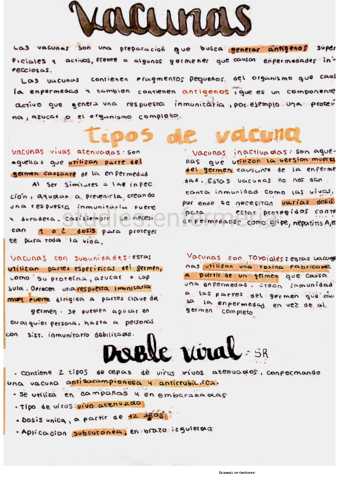 Vacunas
Las vacunas son una preparación que busca generar antígenos super
ficiales y activos, frente a algunos germenes que causan enfermedades in-
fecciosas.
Las vacunas contienen fragmentos pequeños del organismo que caus
la enfermedad y también contienen antígenos, que es un componente
activo que genera una respuesta inmunitaria, por ejemplo una proteí
na, azucar o el organismo completo.
Tipos de vacuna
Vacunas vivas atenuadas: son
aquellas que utilizan parte del
germen causante de la enfermedad
Al ser similares a la infec
ción, ayudan a prevenirla, creando
una respuesta inmunitaria fuerte
y duradera, casi siempre se neces
itan 1 o 2 dosis para proteger
te para toda la vida.
Vacunas inactivadas: son aque-
llas que utilizan la version muerta
del germen causante de la enferme
dad. Estas vacunas no nos dan
tanta inmunidad como las vivas,
por eso se necesitan varias dosis
para estar protegidos contra
enfermedades como gripe, hepatitis A, etc
Vacunas con subunidades: estas
utilizan partes específicas del germen,
como su proteína, azucar o cap
sula. Ofrecen una respuesta inmunitaria
muy fuerte dirigida a partes clave del
germen. Se pueden aplicar en
cualquier persona, hasta a personas
con sist. inmunitario debilitado.
Vacunas con Toxoides: estas vacunas
utilizan una toxina fabricada
a partir de un germen que causa
una enfermedad. Crean inmunidad
a las partes del germen que cau
sa la enfermedad en vez de al
germen completo.
Doble Viral - SR
- Contiene 2 tipos de cepas de virus vivos atenuados, conformando
una vacuna antisarampionosa y antirrubeólica.
- Se utiliza en campañas y en embarazadas
- Tipo de virus: vivo atenuado
- Dosis unica, a partir de 12 años
- Aplicación subcutanea, en brazo izquierdo